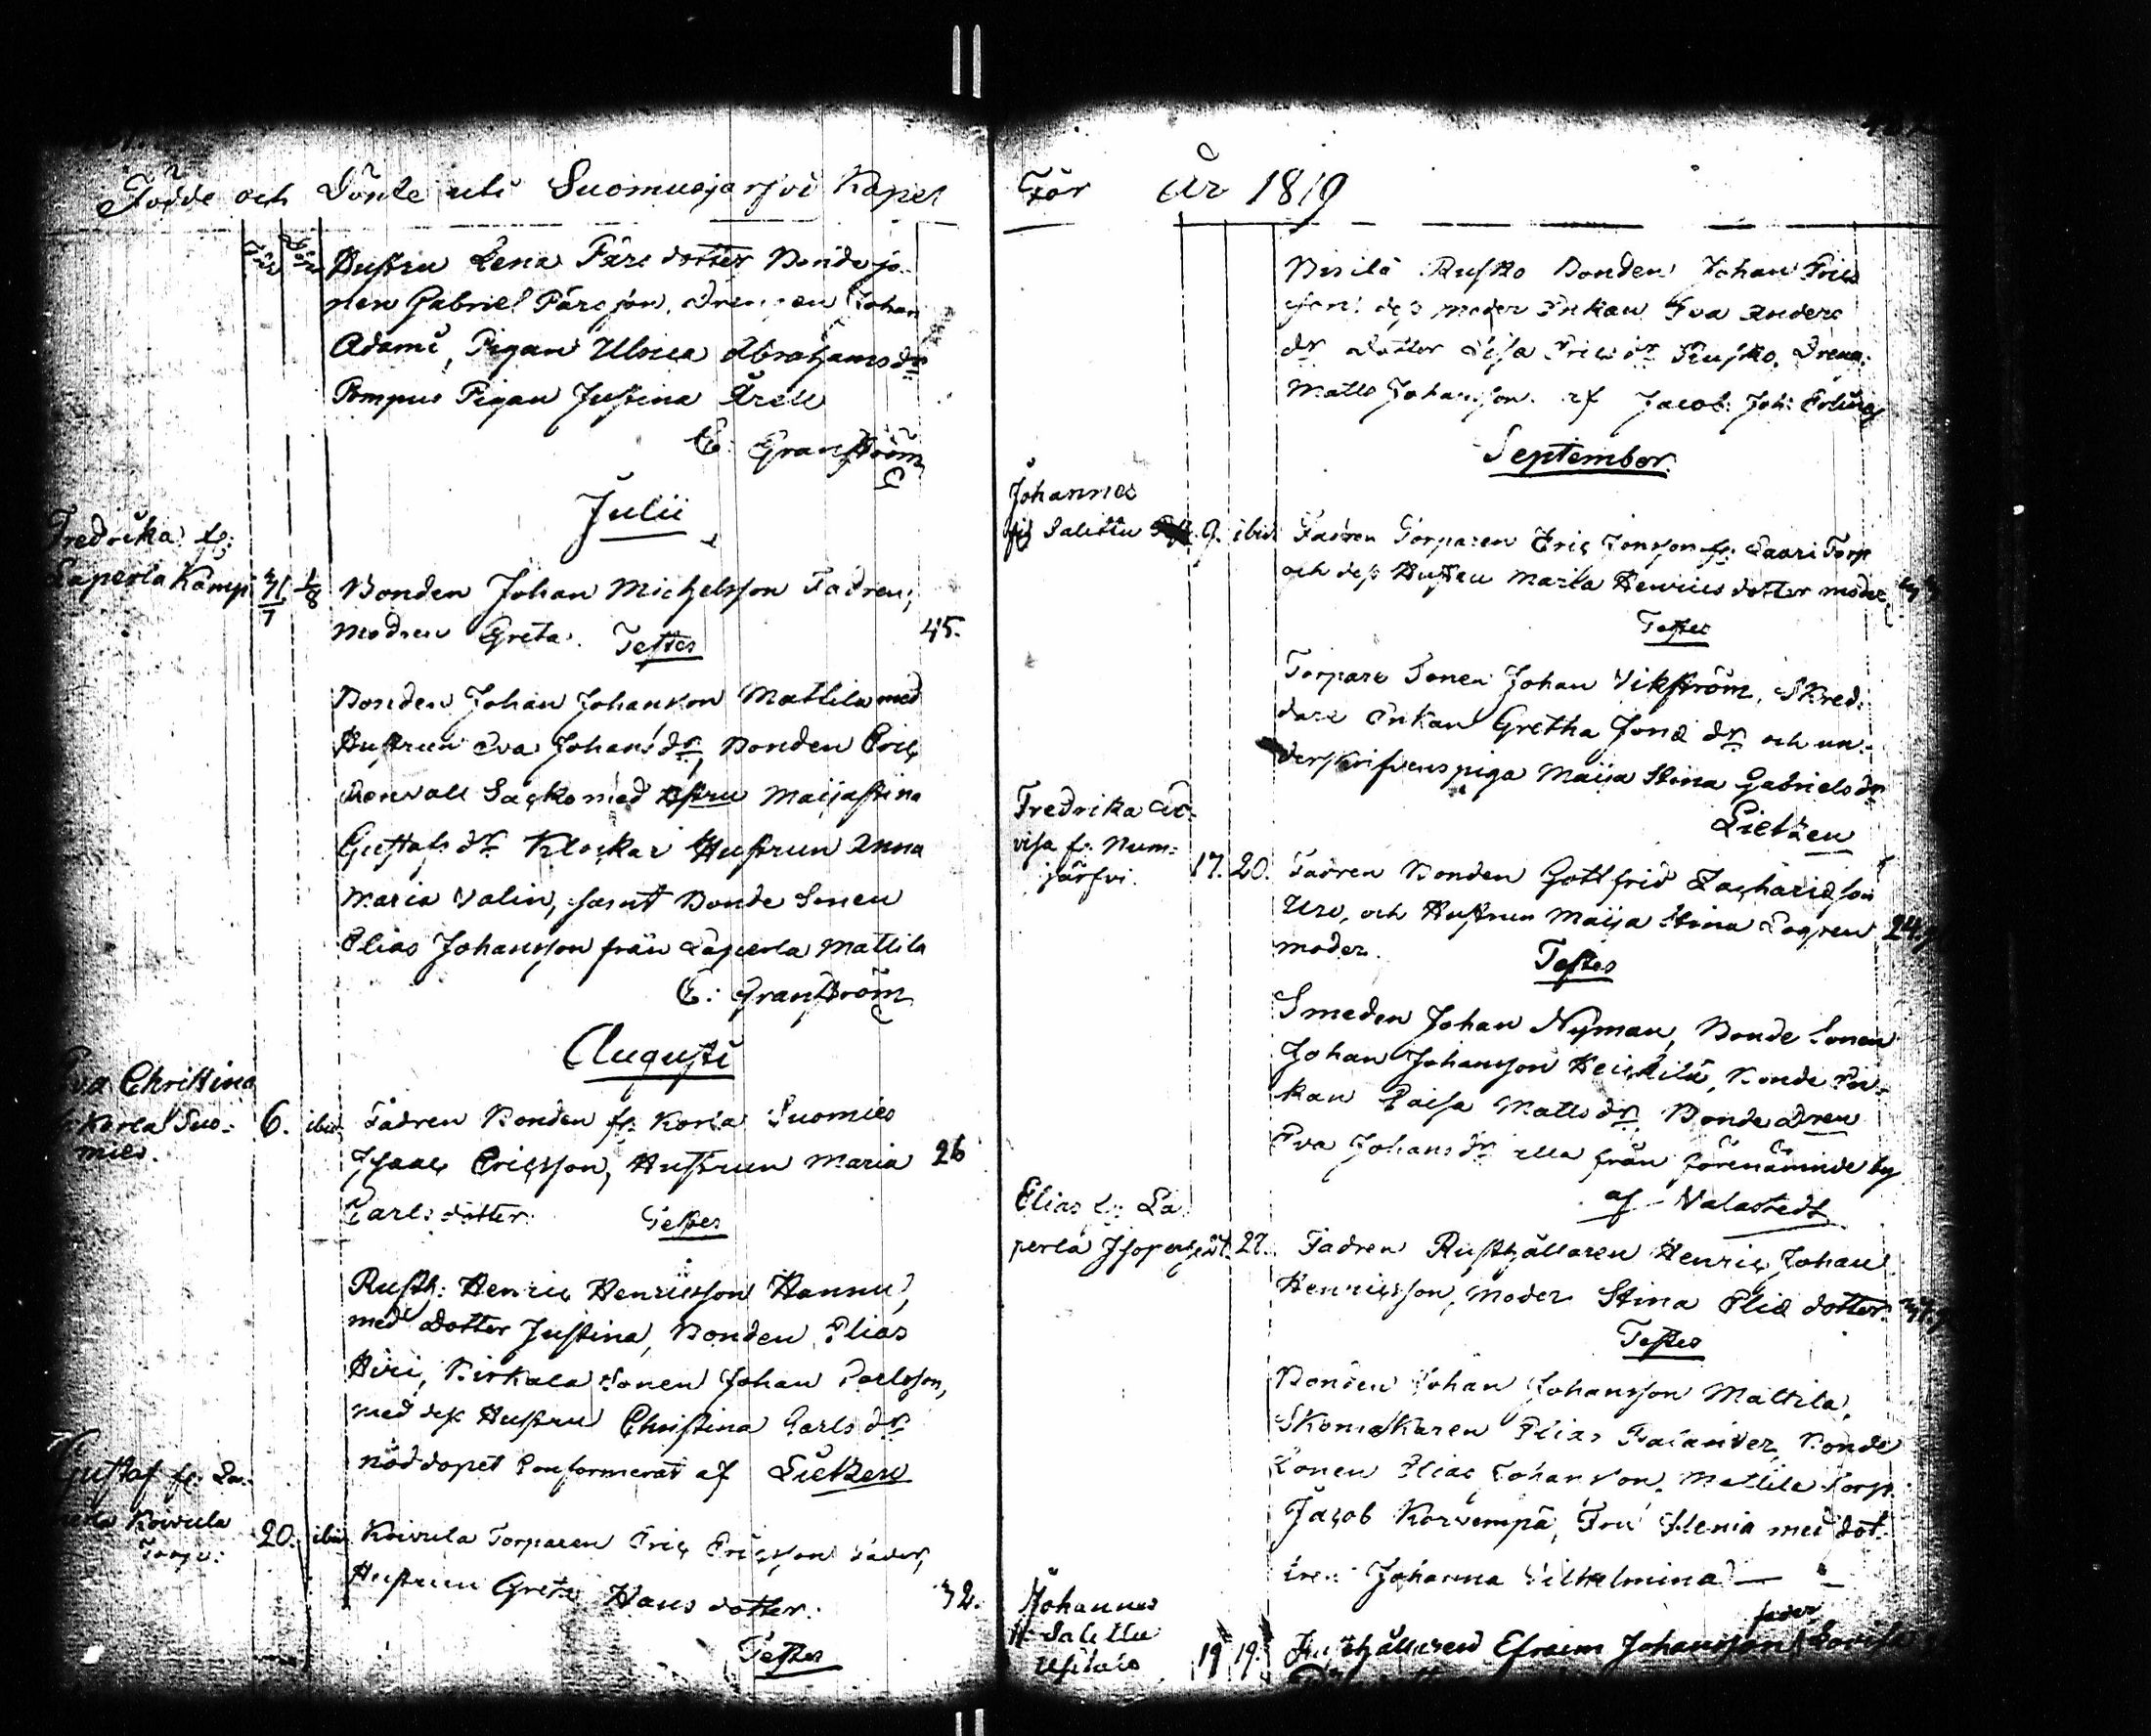 Födde och Döpte uti Suomusjärfvi Kapel
Hustru Lena Pärs dotter Bondeso-
nen Gabriel Pärsson, Drengen Johan
Adami, Pigan Ulrica Abrahams dr
Pompus Pigan Justina
E: Granström
Julii
Fredrika fr:
Laperla Kämpi 31/7 1/8 Bonden Johan Michelsson Fadren,
modren Greta. Testes 45.
Bonden Johan Johansson Mattila med
Hustrun Eva Johans dr, Bonden Eric
Sacko med Hstru Maijastina
Gustafs dr Klockar Hustrun Anna
Maria Valin, samt Bonde Sonen
Elias Johansson från Laperla Mattila
E: Granström
Augusti
Eva Christina
fr Korla Suo-
mies. 6. ibid Fadren Bonden fr: Korla Suomies
Isaac Ericsson, Hustrun Maria 26
Carls dotter. Testes
Rusth: Henric Henricsson Hannu,
med Dotter Justina, Bonden Elias
Hiri, Sonen Johan Carlsson,
med dess Hustru Christina Carls dr
nöddopet Confirmerat af Lietzen
Gustaf fr: La-
perla Koivula
Torp: 20. ibid Koivula Torparen Eric Ericsson fader,
Hustrun Greta Hans dotter. 32.
Testes
För År 1819
Rusko Bonden Johan Eries
son dess moder Enkan Eva Anders
dr dotter Lisa Erics dr Rusko, Dreng.
Matts Johansson. af Jacob: Joh:
September.
Johannes
fr Salittu 9. ibid Fadren Torparen Eric Jonsson fr: Saari Torp
och dess Hustru Maria Henrics dotter moder
Testes
Torpare Sonen Johan Vikström, Skred-
dare Enkan Gretha Jonæ dr och un-
derskrifvens piga Maija Stina Gabriels dr
Lietzen
Fredrika Lo-
visa fr. Num-
järfvi. 17. 20. Fadren Bonden Gottfrid Zachariæson
Uro, och Hustrun Maija Stina 24
moder. Testes
Smeden Johan Nyman, Bonde Sonen
Johan Johansson Heickilä, Bonde En-
kan Caisa Matts dr, Bonde Dren
Eva Johans dr alla från förenämnde by
af Valastedt
Elias fr: La
perla Isoperhjät. 27. Fadren Rusthållaren Henric Johan
Henricsson, moder Stina Eliæ dotter.
Testes
Bonden Johan Johansson Mattila,
Skomakaren Elias Falander, Bonde
Sonen Elias Johansson, Mattila Torp.
Jacob Korvempä, Fru Helenia med dot-
tren Johanna Vilhelmina
Johannes
fr Salittu
19 19. Rusthållaren Efraim Johansson fader Lovisa